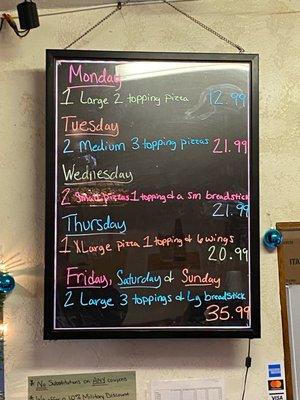 Monday
1 Large 2 topping pizza 12.99
Tuesday
2 Medium 3 topping pizzas 21.99
Wednesday
2 Small pizzas 1 topping & a sm breadstick
21.99
Thursday
1 XLarge pizza 1 topping & 6 wings
20.99
Friday, Saturday & Sunday
2 Large 3 toppings & Lg breadstick
35.99
No Substitutions on ANY coupons
We offer 10% Military Discount
VISA